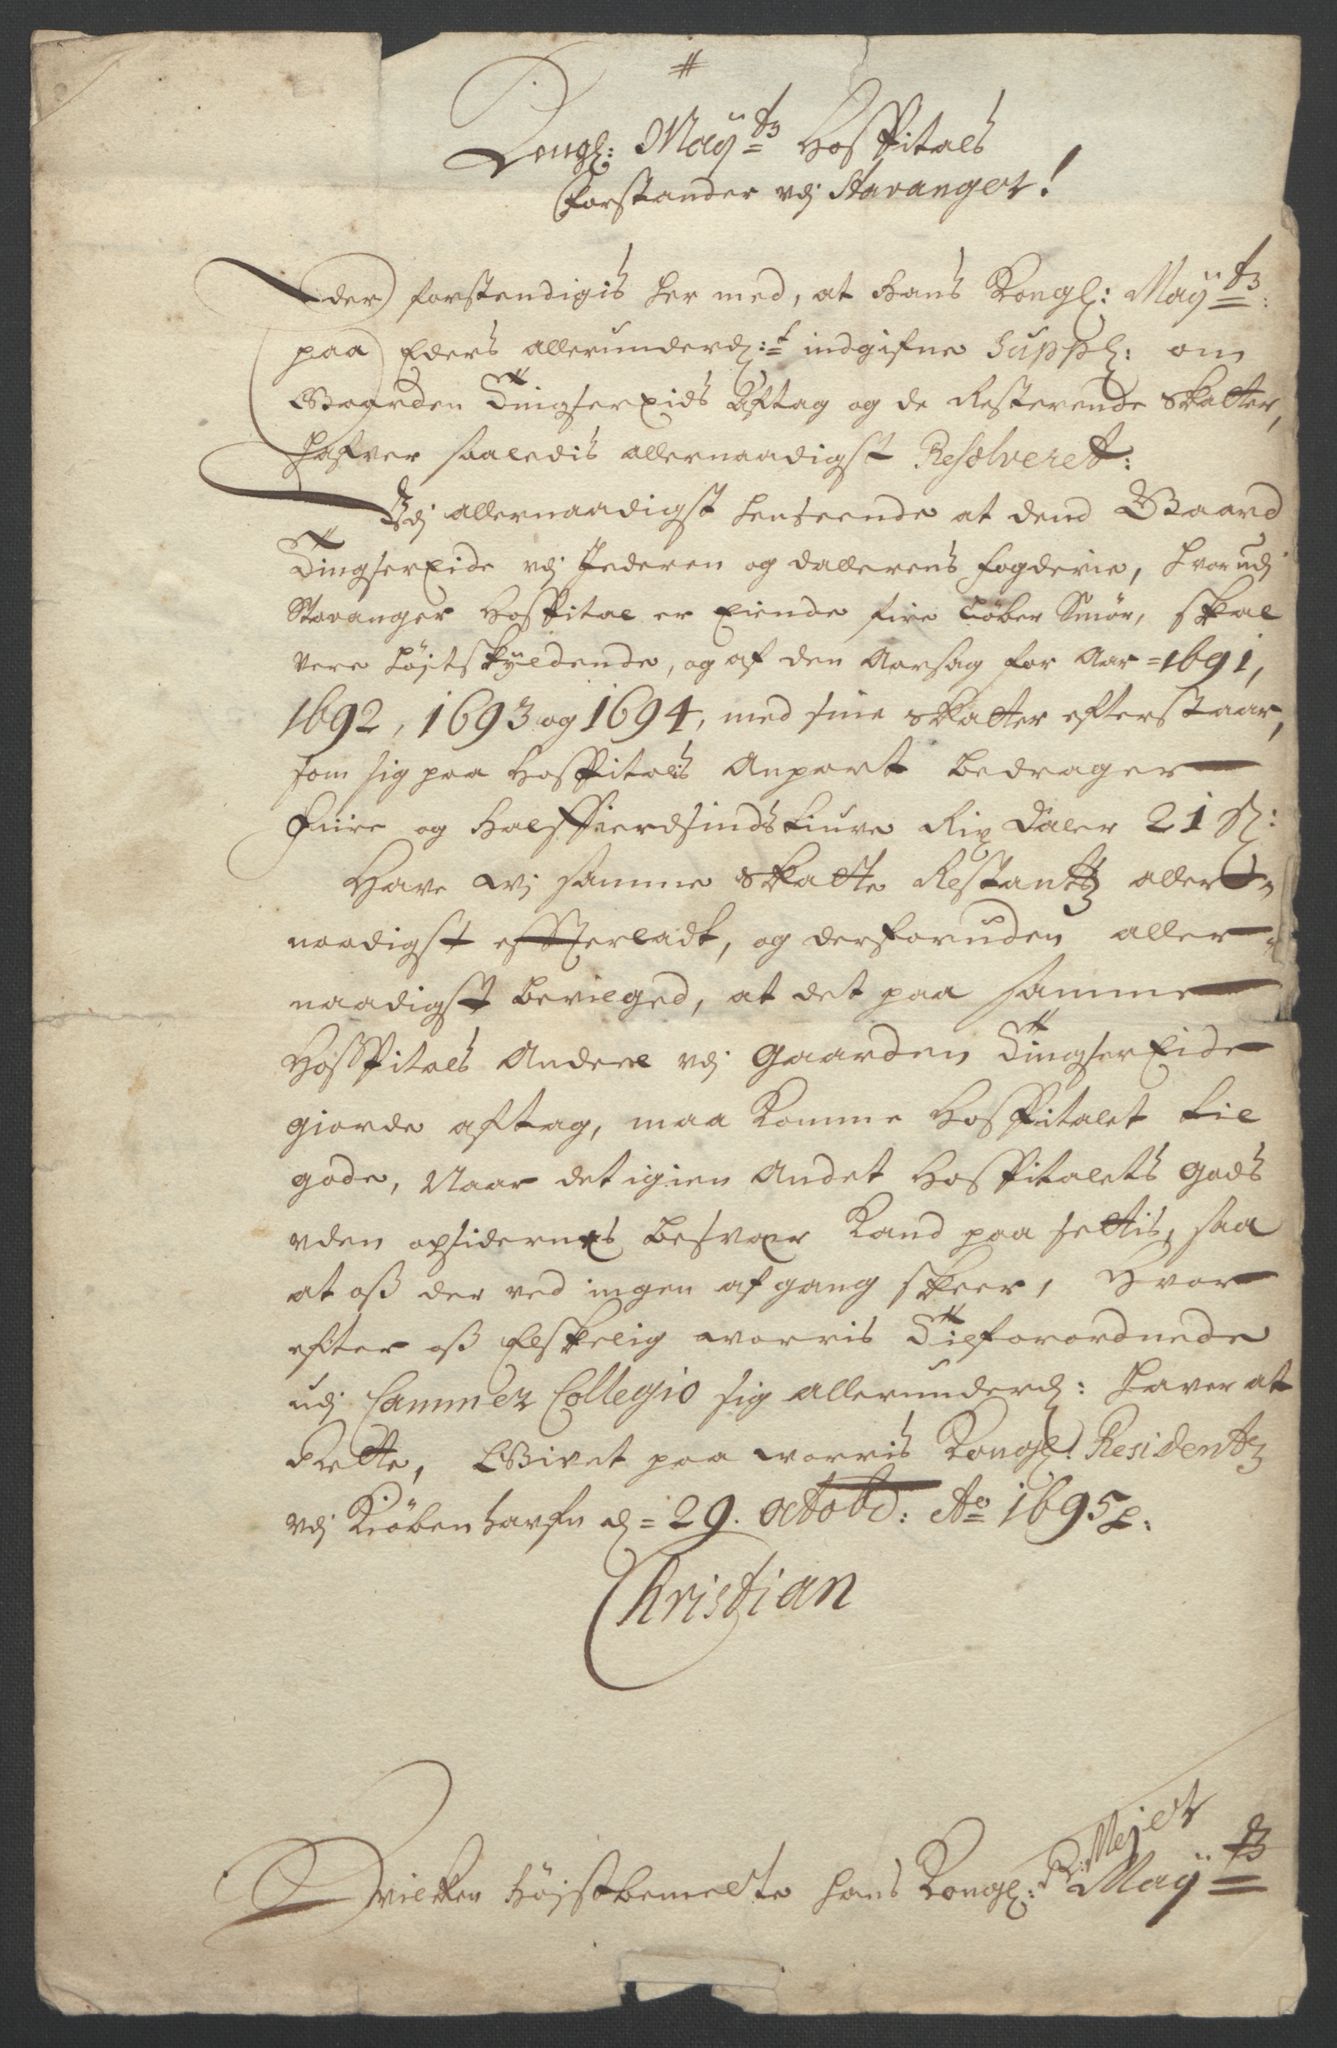 #
Kongl: Maÿtz Hospitals
Forstander vdj Stavanger!
Eder forstendigis her med, at Hans Kongl: Maÿtz:
paa Eders allerunderd:t indgifne Suppl: om
Gaarden TingserEids Aftag og de Resterende Skatter,
hafver saaledis allernaadigst Resolveret:
Vdj allernaadigst henseende at dend Gaard
TingserEide vdj Jederen og Dallerens fogderie, hvorudj
Stavanger Hospital er Eiende fire Løber Smør, skal
vere højtskÿldende, og af den Aarsag for Aar = 1691,
1692, 1693 og 1694, med sine skatter efterstaar,
som sig paa Hospitals Anpart bedrager
Fiire og Halffierdsindstiuve Rix Daler 21 s:
Have wj samme Skatte Restantz aller=
naadigst effterladt, og derforuden aller=
naadigst bevilged, at det paa samme
Hospitals Andeel vdj gaarden TingserEide
giorde aftag, maa komme Hospitalet til
gode, Naar det igien Andet Hospitalets gods
vden opsidernes besvær kand paa settis, saa
at oß der ved ingen afgang skeer, Hvor
efter oß Elskelig worris Tilforordnede
udj Cammer Collegio sig allerunderd: haver at
Rette, Givet paa worris Kongl: Residentz
vdj Kiøbenhafn d = 29. octobr: Ao 1695 p.
Christian
R: Mejer
Hvilken højstbemelte hans Kongl: Maÿtz